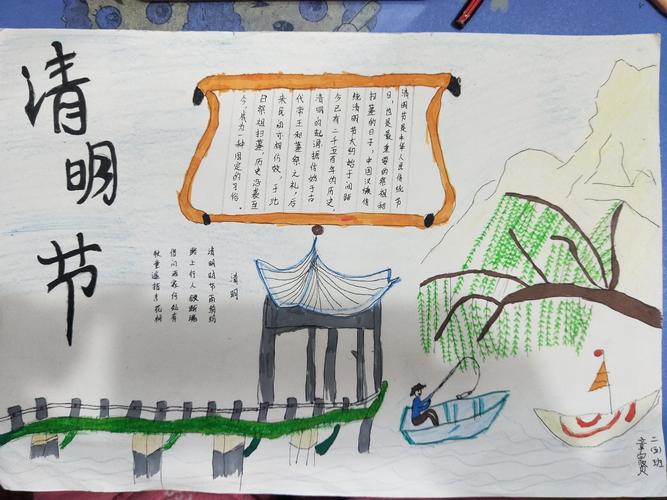 清明节
清明节是中华人民传统节
日,也是最重要的祭祖和
扫墓的日子,中国汉族传
统清明节大约始于周朝
今已有二千五百年的历史,
清明的起源,据传始于古
代帝王和墓祭之礼,后
来民间亦相仿效,于此
日祭祖扫墓,历史沿袭至
今,成为一种固定的习俗。
清明
清明时节雨纷纷
路上行人欲断魂
借问酒家何处有
牧童遥指杏花村
二(3)班